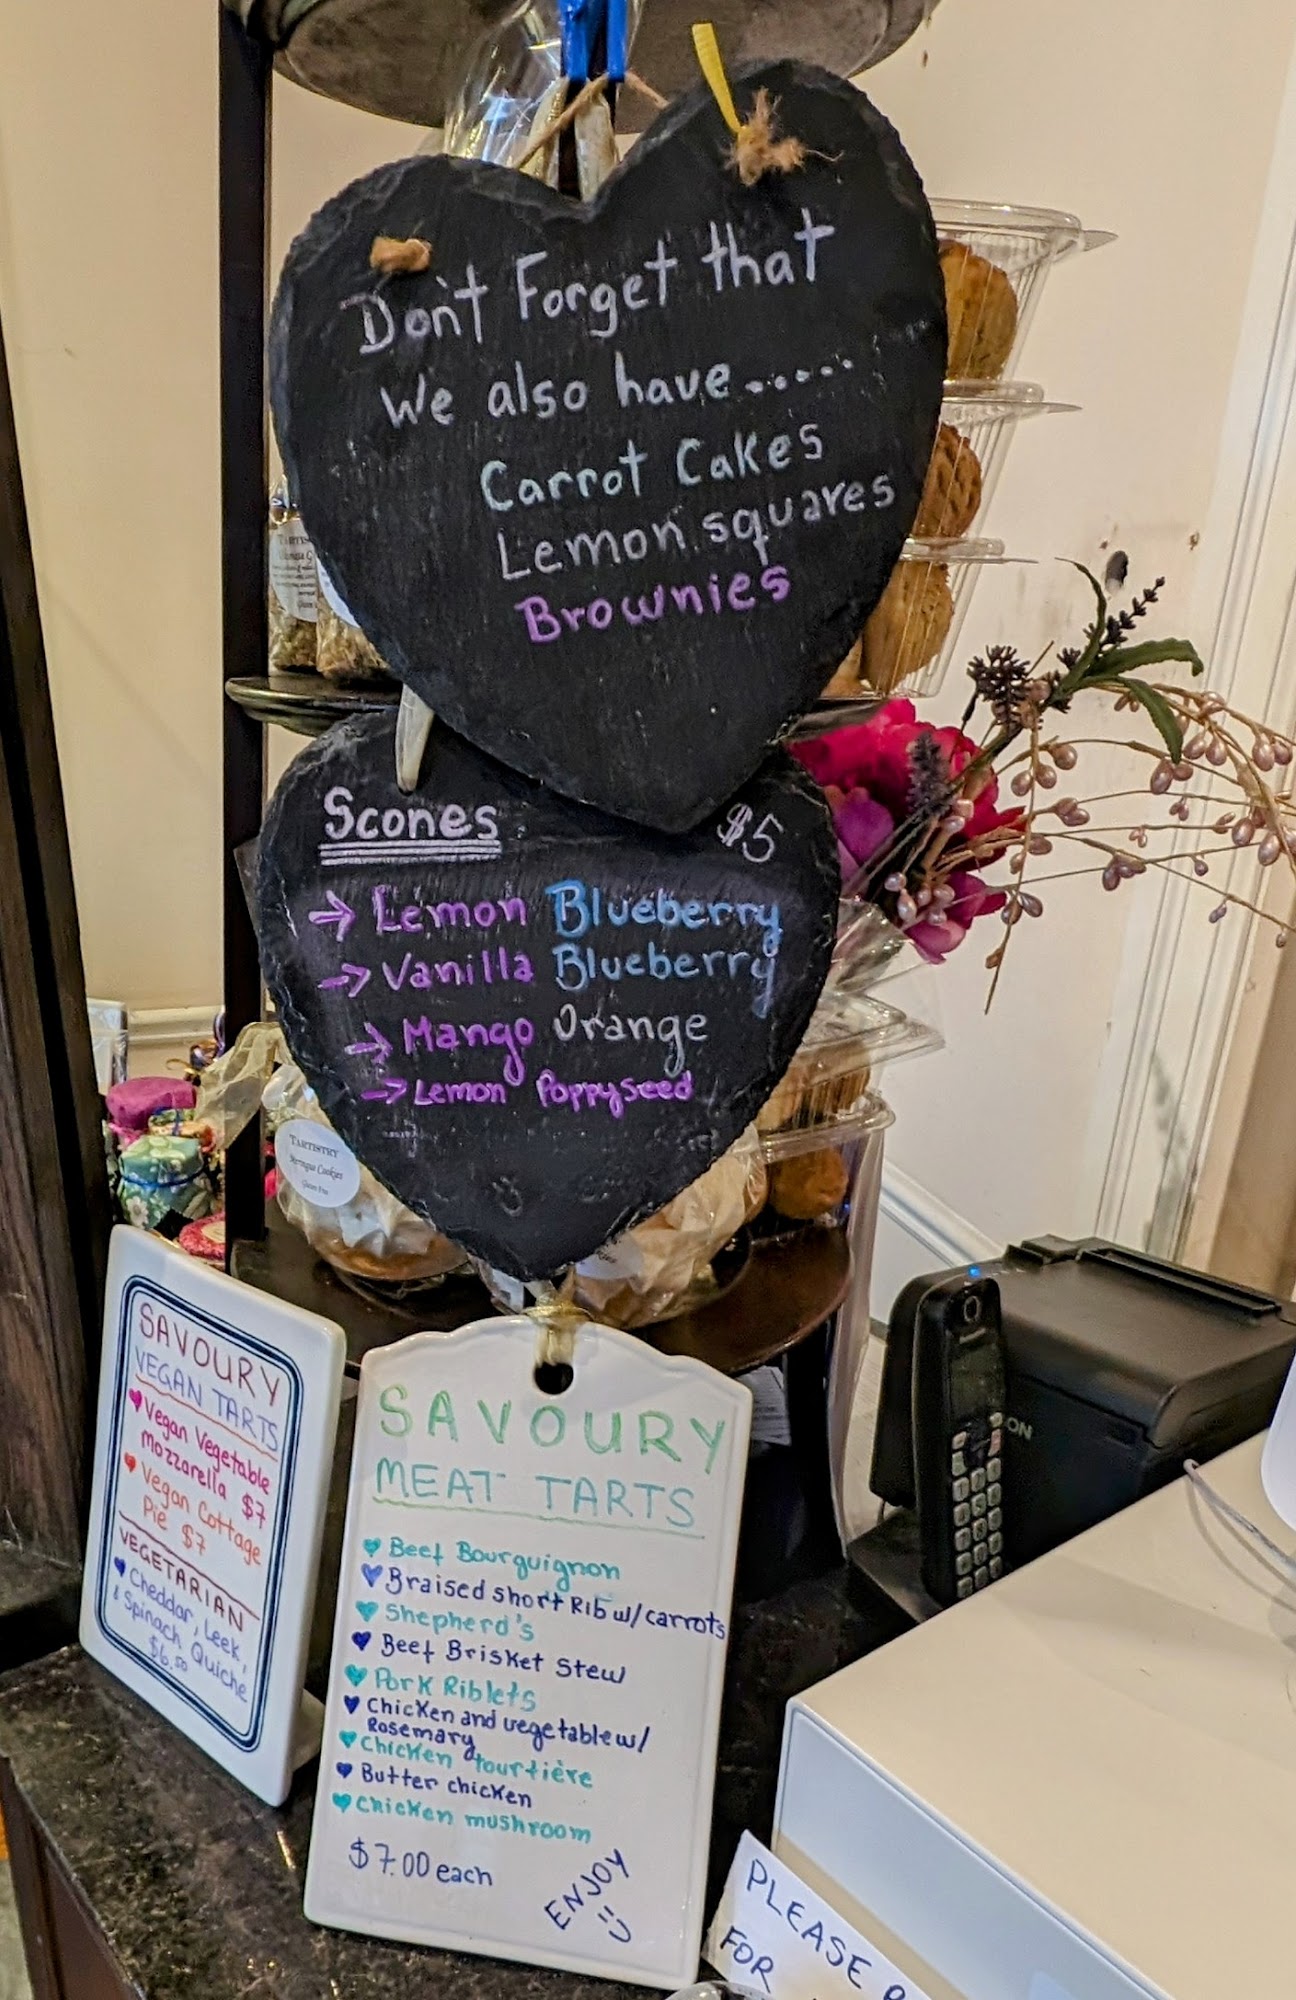 Don't Forget that
We also have.....
Carrot Cakes
Lemon squares
Brownies
Scones
$5
→ Lemon Blueberry
→ Vanilla Blueberry
→ Mango Orange
→ Lemon Poppyseed
TARTISTRY
Meringue Cookies
Gluten Free
SAVOURY
VEGAN TARTS
Vegan Vegetable
mozzarella $7
Vegan Cottage
Pie $7
VEGETARIAN
Cheddar, Leek,
& Spinach Quiche
$6.50
SAVOURY
MEAT TARTS
Beef Bourguignon
Braised short Rib w/ carrots
Shepherd's
Beef Brisket Stew
Pork Riblets
Chicken and vegetable w/
Rosemary
Chicken tourtière
Butter chicken
Chicken mushroom
$7.00 each
ENJOY
PLEASE
FOR